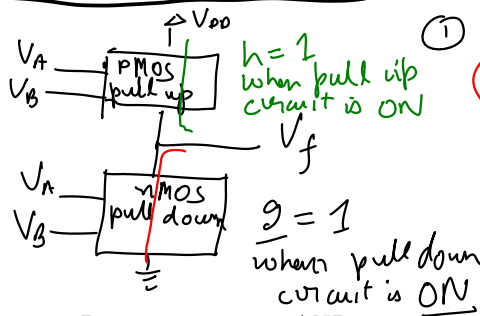 V_DD
V_A
V_B
PMOS
pull up
h = 1
when pull up
circuit is ON
1
V_f
V_A
V_B
nMOS
pull down
g = 1
when pull down
circuit is ON